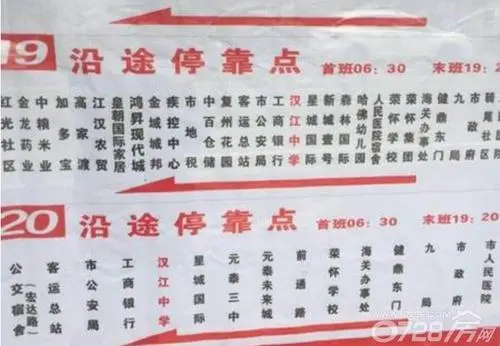 19 沿途停靠点 首班06:30 末班19:2
红光社区
金龙药业
中粮米业
加多宝
高家渡
江汉农贸
皇朝国际家居
鸿昇现代城
金域城邦
疾控中心
市地税
中百仓储
复州花园
客运总站
市公安局
工商银行
汉江中学
星城国际
新城壹号
森林国际
哈佛幼儿园
人民医院宿舍
荣怀学校
荣怀集团
海关办事处
健鼎东门
九局
市政府
20 沿途停靠点 首班06:30 末班19:20
公交宿舍
客运总站(宏达路)
市公安局
工商银行
汉江中学
星城国际
元泰三中
元泰未来城
前通路
荣怀学校
海关办事处
健鼎东门
九局
市政府
市人民医院
0728房网